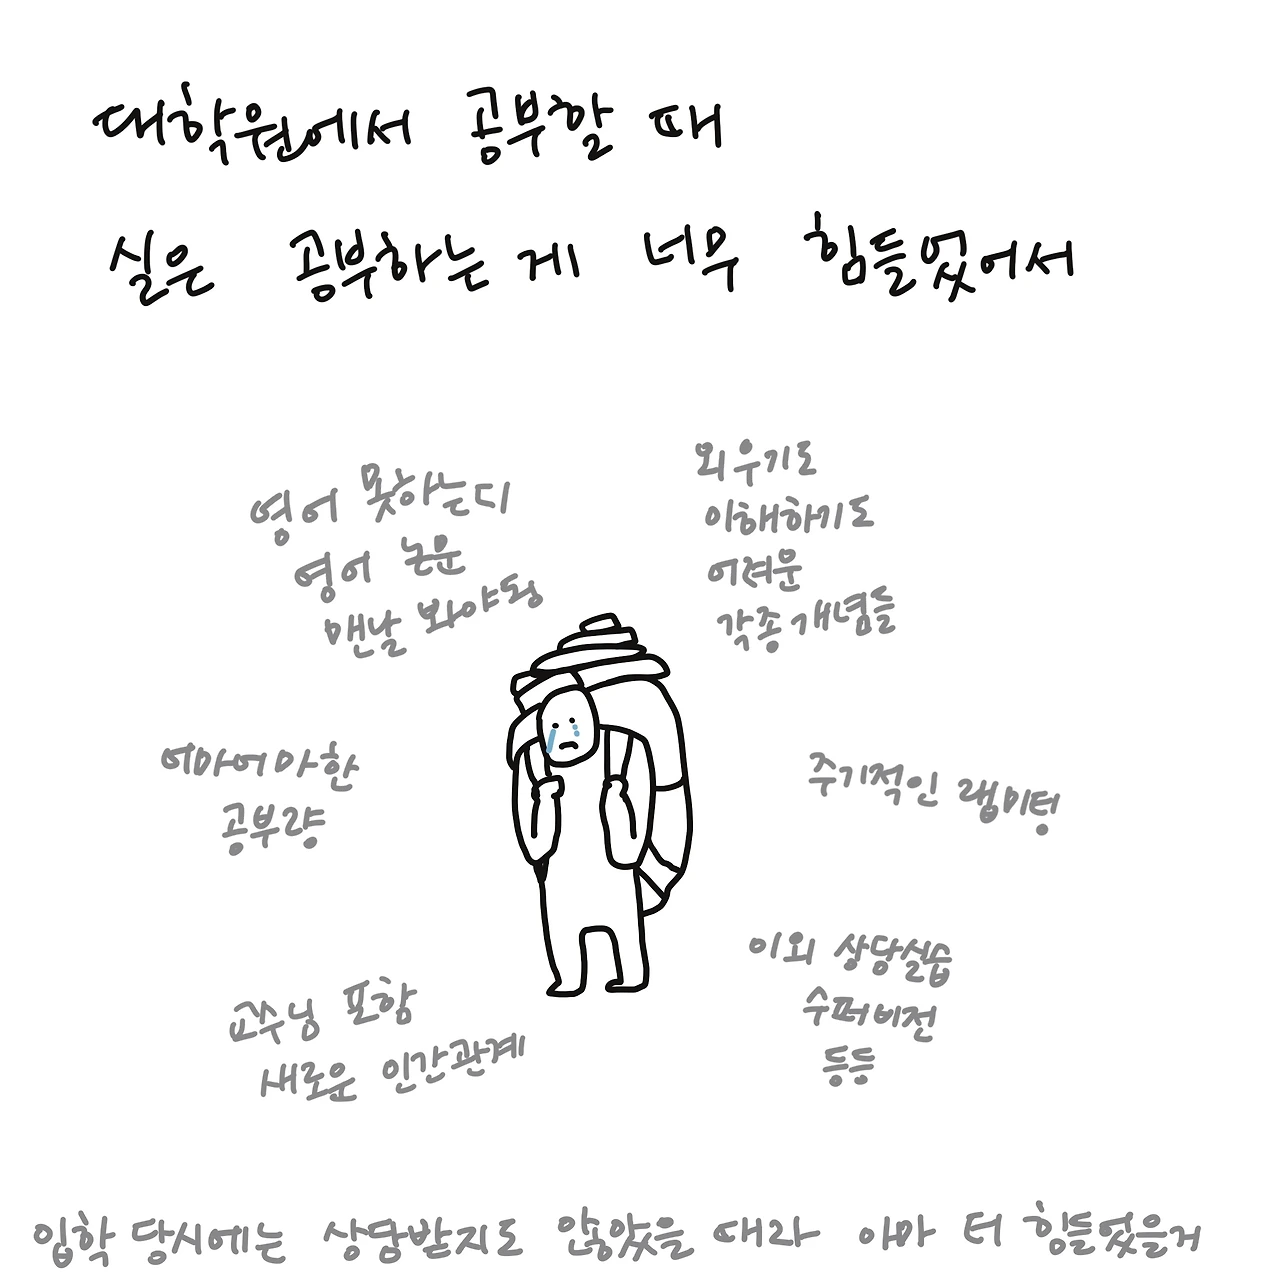 대학원에서 공부할 때
실은 공부하는 게 너무 힘들었어서
영어 못하는디
영어 논문
맨날 봐야됭
외우기도
이해하기도
어려운
각종 개념들
어마어마한
공부량
주기적인 랩미팅
교수님 포함
새로운 인간관계
이외 상담실습
수퍼비전
등등
입학 당시에는 상담받지도 않았을 때라 아마 더 힘들었을거